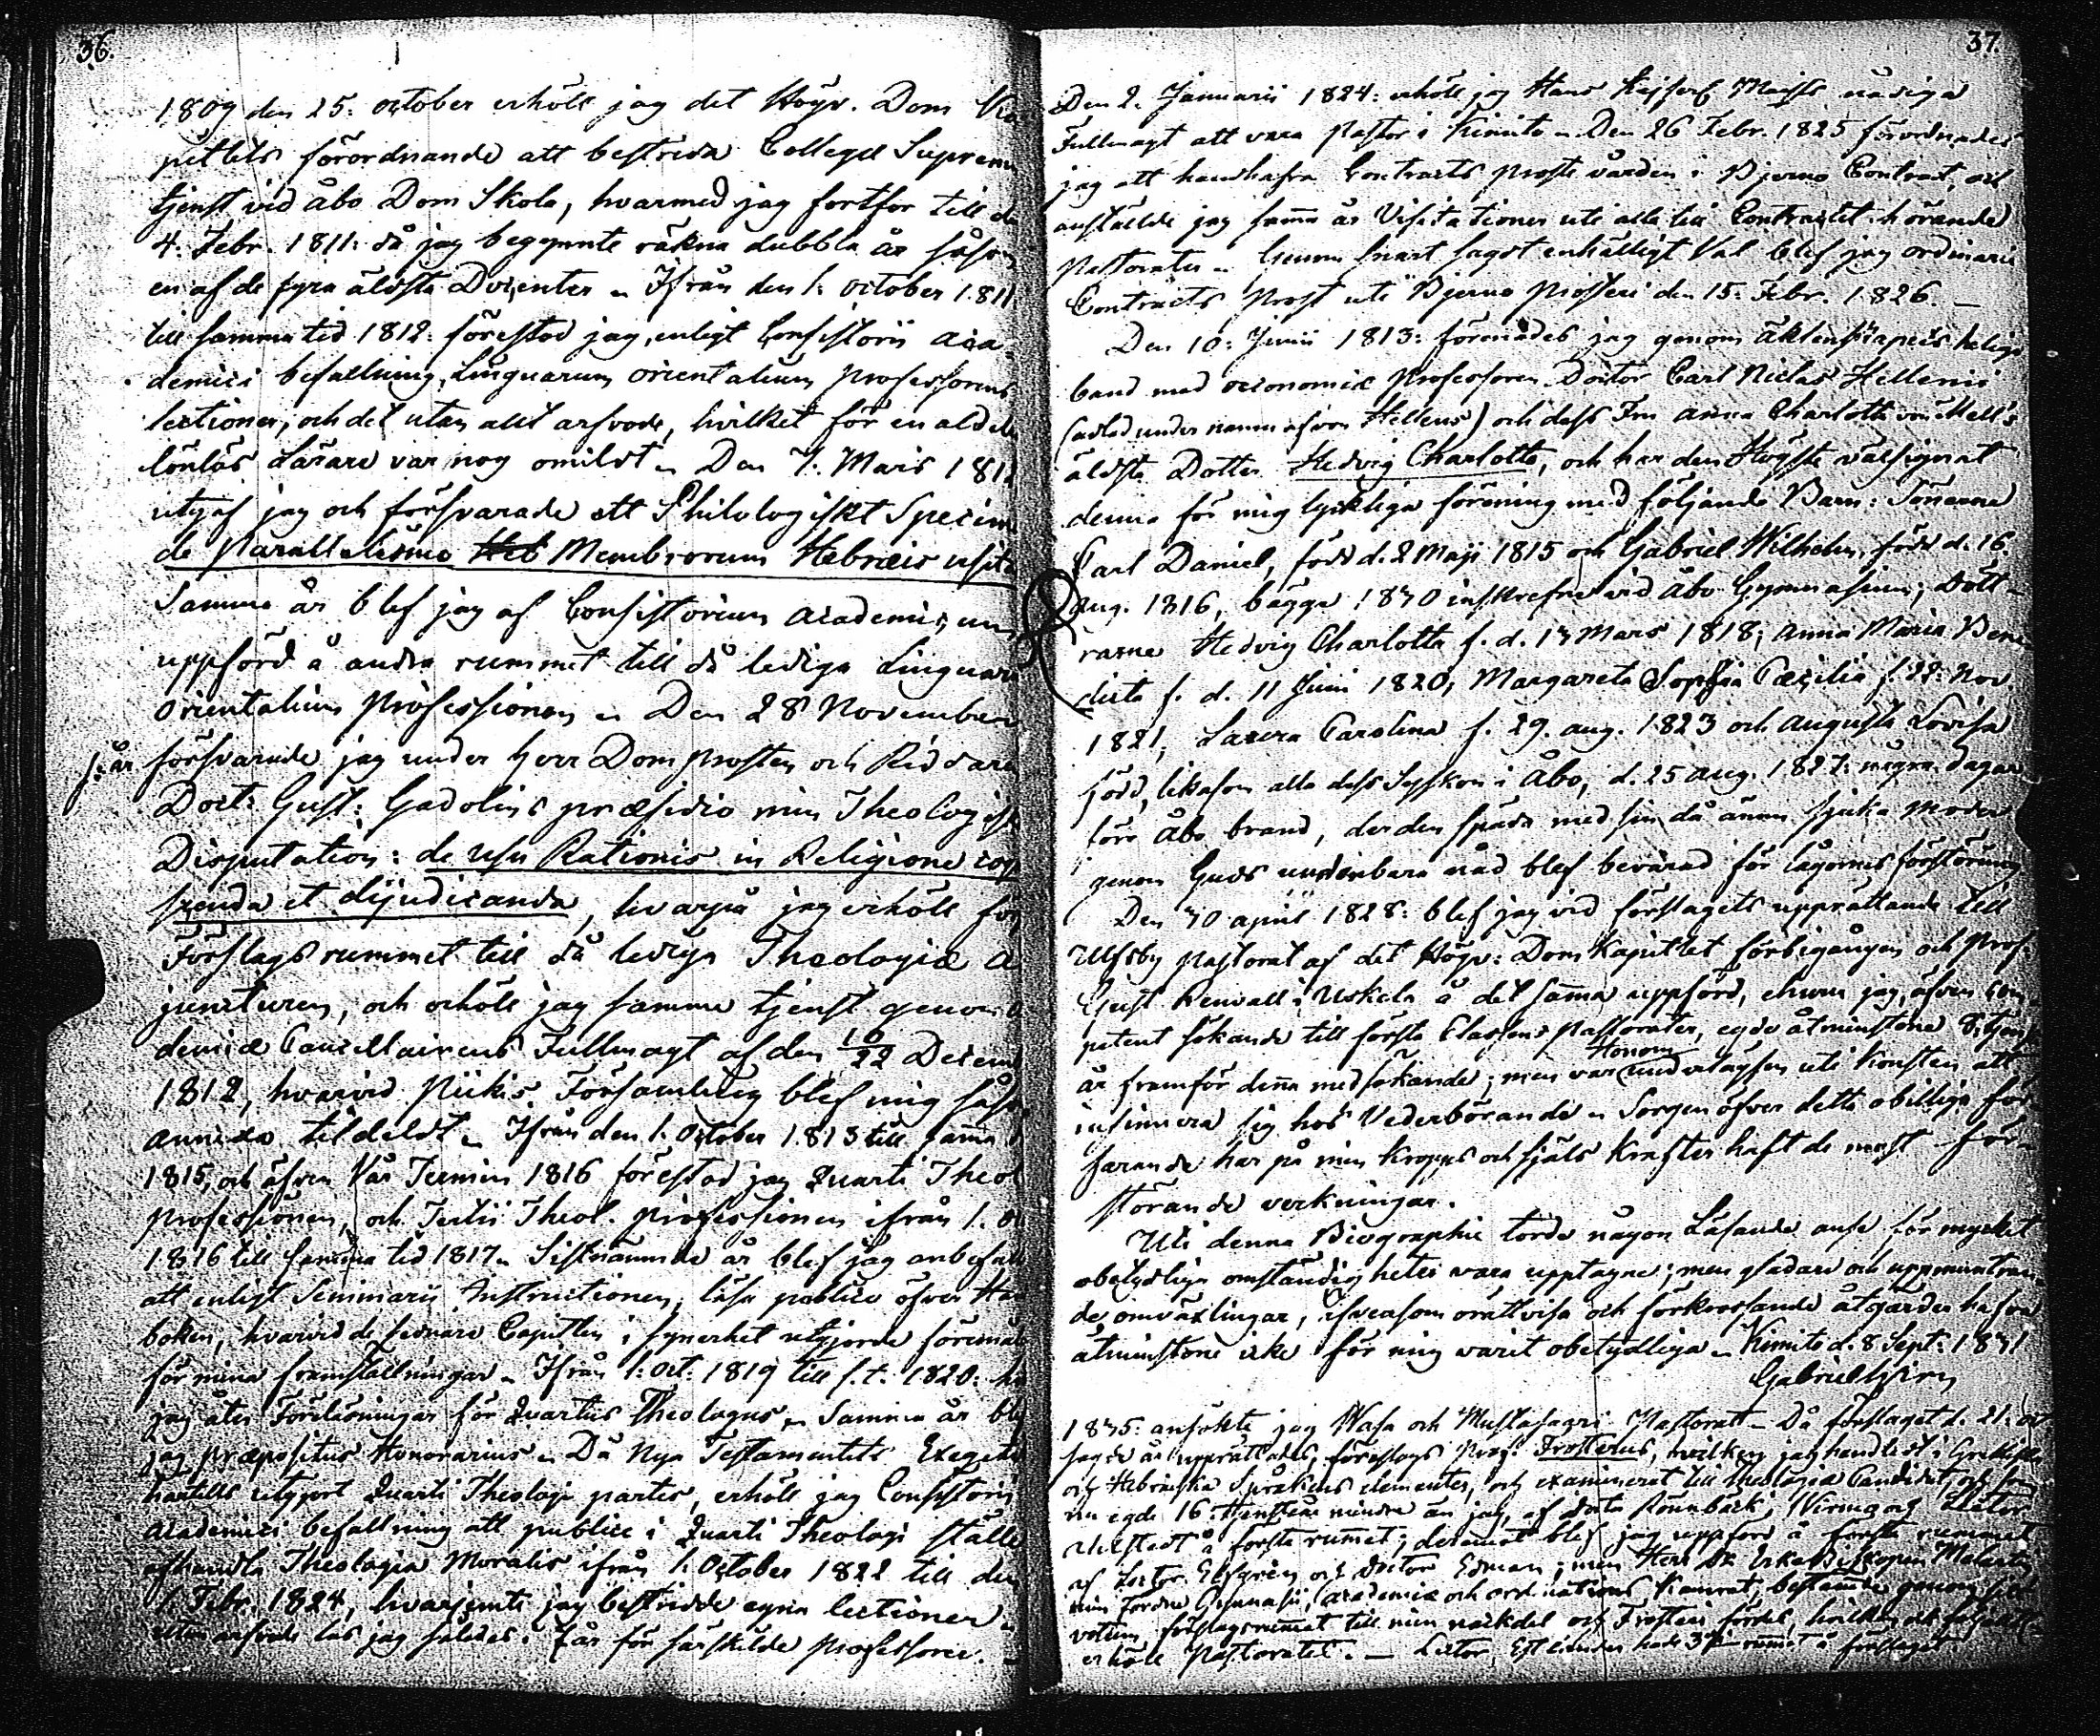 36.
1809 den 25. october erhöll jag det Högv. Dom Ka
pitlets förordnande att bestrida Collegæ Supremi
tjenst vid Åbo Dom Skola, hvarmed jag fortfor till d
4. Febr. 1811: då jag begynnte räkna dubbla år såsom
en af de fyra äldsta Docenter. Ifrån den 1. october 1811
till samma tid 1812: förestod jag, enligt Consistorii aca-
demici befallning, Linguarum orientalium Professorens
lectioner, och det utan allt arfvode, hvilket för en aldeles
lönlös Lärare var nog omildt. Den 7. Mars 1812
utgaf jag och försvarade ett Philologiskt Specim
de Parallelismo Heb Membrorum Hebræis usita
Samma år blef jag af Consistorium academicum
uppförd å andra rummet till då lediga Linguar
orientalium Professionen. Den 28 November
s. år försvarade jag under Herr Domprosten och Riddaren
Doct: Gust: Gadolins præsidio min Theologiska
Disputation: de usu Rationis in Religione cogno
scenda et dijudicanda, hvarpå jag erhöll för
Förslagsrummet till då lediga Theologiæ a
juncturen, och erhöll jag samma tjenst genom a
demiæ Cancellairens Fullmagt af den 10/22 Decem
1812, hvarvid Piikis Församling blef mig såsom
annexa tildeldt. Ifrån den 1. October 1813 till sama
1815, och äfven Vår Termin 1816 förestod jag Quarti Theol
professionen, och Tertii Theol. professionen ifrån 1. O
1816 till samma tid 1817. Sistnämnde år blef jag anbefall
att enligt Seminarii Instructionen, läsa publice öfver Han
boken, hvarvid de sednare Capitlen i synnerhet utgjorde föremål
för mina framställningar. Ifrån 1. Oct. 1819 till s. t. 1820: h
jag åter Föreläsningar för Quartus Theologus. Samma år blef
jag præpositus Honorarius. Då Nya Testamentets Exegetik
hartills utgjort Quarti Theologi partes, erhöll jag Consistorii
academici befallning att publice i Quarti Theologi ställe
afhandla Theologia Moralis ifrån 1. October 1822 till den
1 Febr. 1824, hvarjemte jag bestridde egna lectioner.
utan arfvode las jag således 7 år för särskilde Professorer. –
37.
Den 2. Januarii 1824: erhöll jag Hans Kejserl. Maijts nådiga
Fullmagt att vara Pastor i Kimito. Den 26 Febr. 1825 förordnades
jag att handhafva Contracts Prosts vården i Bjerno Contract, och
anställde jag sama år Visitationer uti alla till Contractet hörande
Pastorater. Genom snart sagdt enhälligt Val blef jag ordinarie
Contracts Prost uti Bjerno Prosteri den 15. Febr. 1826. –
Den 10. Junii 1813: förenades jag genom äktenskapets heliga
band med oeconomiæ Professoren Doctor Carl Niclas Hellenii
(adlad under namn af von Hellens) och dess Fru Anna Charlotta von Mell's
äldsta Dotter Hedvig Charlotta, och har den Högste välsignat
denna för mig lyckliga förening med följande Barn: Sönerne
Carl Daniel, född d. 2 Maji 1815 och Gabriel Wilhelm, född d. 16.
Aug. 1816, bägge 1830 inskrefne vid Åbo Gymnasium; Dött-
rarne Hedvig Charlotta f. d. 13 Mars 1818; Anna Maria Bene
dicta f. d. 11 Juni 1820; Margareta Sophia Cæcilia f. 22. Nov.
1821, Laura Carolina f. 29. aug. 1823 och Augusta Lovisa
född, likasom alla dess Syskon i Åbo, d. 25 Aug. 1827: några dagar
före Åbo brand, der den späda med sin då ännu sjuka Moder
genom Guds underbara nåd blef bevarad för lågornes förstöring
Den 30 april 1828: blef jag vid förslagets upprättande till
Ulfsby Pastorat af det Högv: Dom Kapitlet förbigången och Prof.
Gust. Renvall i Uskela å det sama uppförd, ehuru jag, äfven com
petent sökande till första Classens Pastorater, egde åtminstone 8. tjenst
år framför denna medsökande; men var Honom underlägsen uti konsten att
insinuera sig hos Vederbörande. Sorgen öfver detta obilliga för
farande har på min kropps och själs krafter haft de mest för-
störande verkningar.
Uti denna Biographie torde någon Läsande anse för mycket
obetydliga omständigheter vara upptagne; men gladare och uppmuntran
de omväxlingar, äfvensom orättvisa och förkrossande åtgärder hafva
åtminstone icke för mig varit obetydliga. Kimito d. 8 Sept. 1831
1835: ansökte jag Wasa och Mustasaari Pastorat. Då förslaget d. 21. oct
sagde år upprättades, föreslogs Prof. Frosterus, hvilken jag handledt i Grekiska
och Hebraiska Språkens elementer, och examinerat till theologiæ Candidat, och som
nu egde 16. tjenstår mindre än jag, af
å första rumet; deremot blef jag uppförd å första rummet
af Lector Elfgren och Doctor Edman; men Herr Erke Biskopen Melartin
min fordne Gymnasii, academiæ och ordinations kamrat, bestämde genom sitt
votum förslagsrummet till min nackdel och Frosterii fördel, hvilken ock
erhöll Pastoratet. – Lector Estlander hade 3dje rumet å förslaget